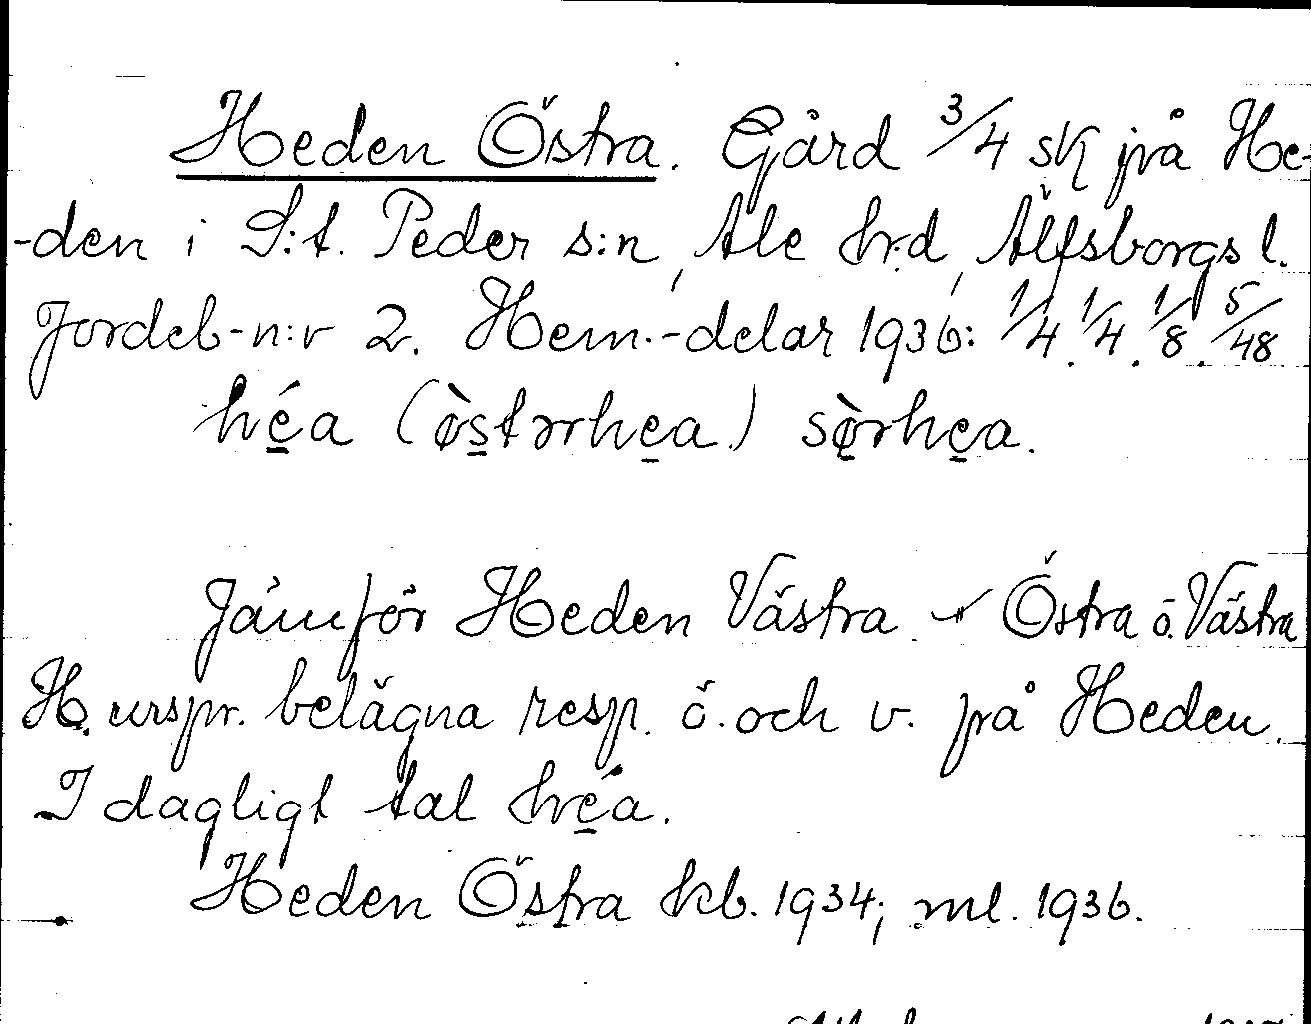 Heden Östra. Gård 3/4 sk på He-
-den i S:t. Peder s:n, Ale hrd, Älfsborgs l.
Jordeb-n:r 2. Hem.-delar 1936: 1/4. 1/4. 1/8. 5/48
héa (òstərhea) sørhea.
Jämför Heden Västra. Östra o. Västra
H. urspr. belägna resp. ö. och v. på Heden.
I dagligt tal héa.
Heden Östra kb. 1934; ml. 1936.